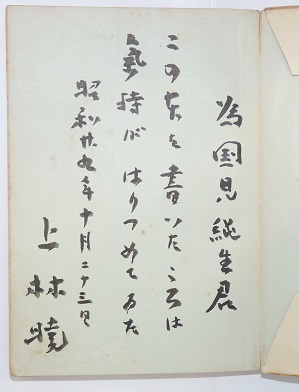 為国見純生君
この本を書いたころは
氣持がはりつめてゐた
昭和廿九年十月二十三日
上林暁